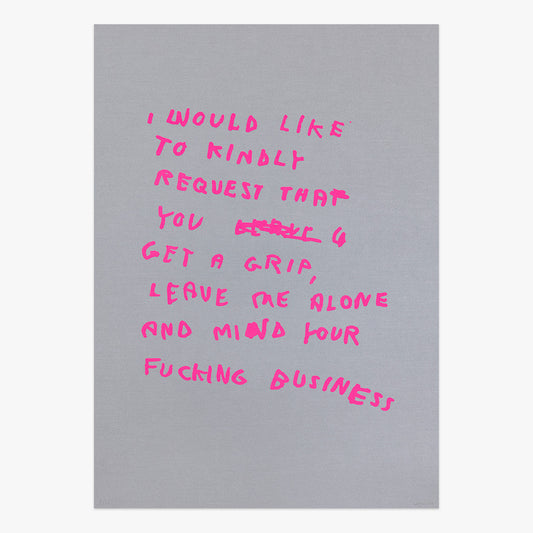 I WOULD LIKE
TO KINDLY
REQUEST THAT
YOU
GET A GRIP,
LEAVE ME ALONE
AND MIND YOUR
FUCKING BUSINESS